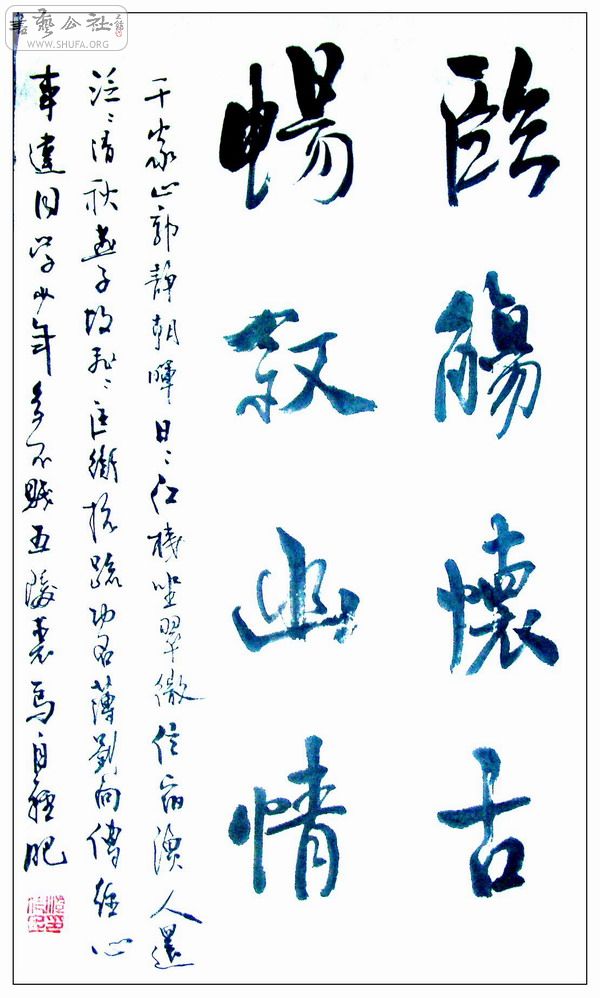 臨觴懷古
暢敘幽情
千家山郭靜朝暉日〻江樓坐翠微信宿漁人還
泛〻清秋燕子故飛〻匡衡抗疏功名薄劉向傳經心
事違同學少年多不賤五陵裘馬自輕肥
書藝公社
WWW.SHUFA.ORG